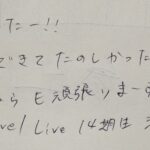 たー!!
できてたのしかった
らも頑張りまーす
vel Live 14期生